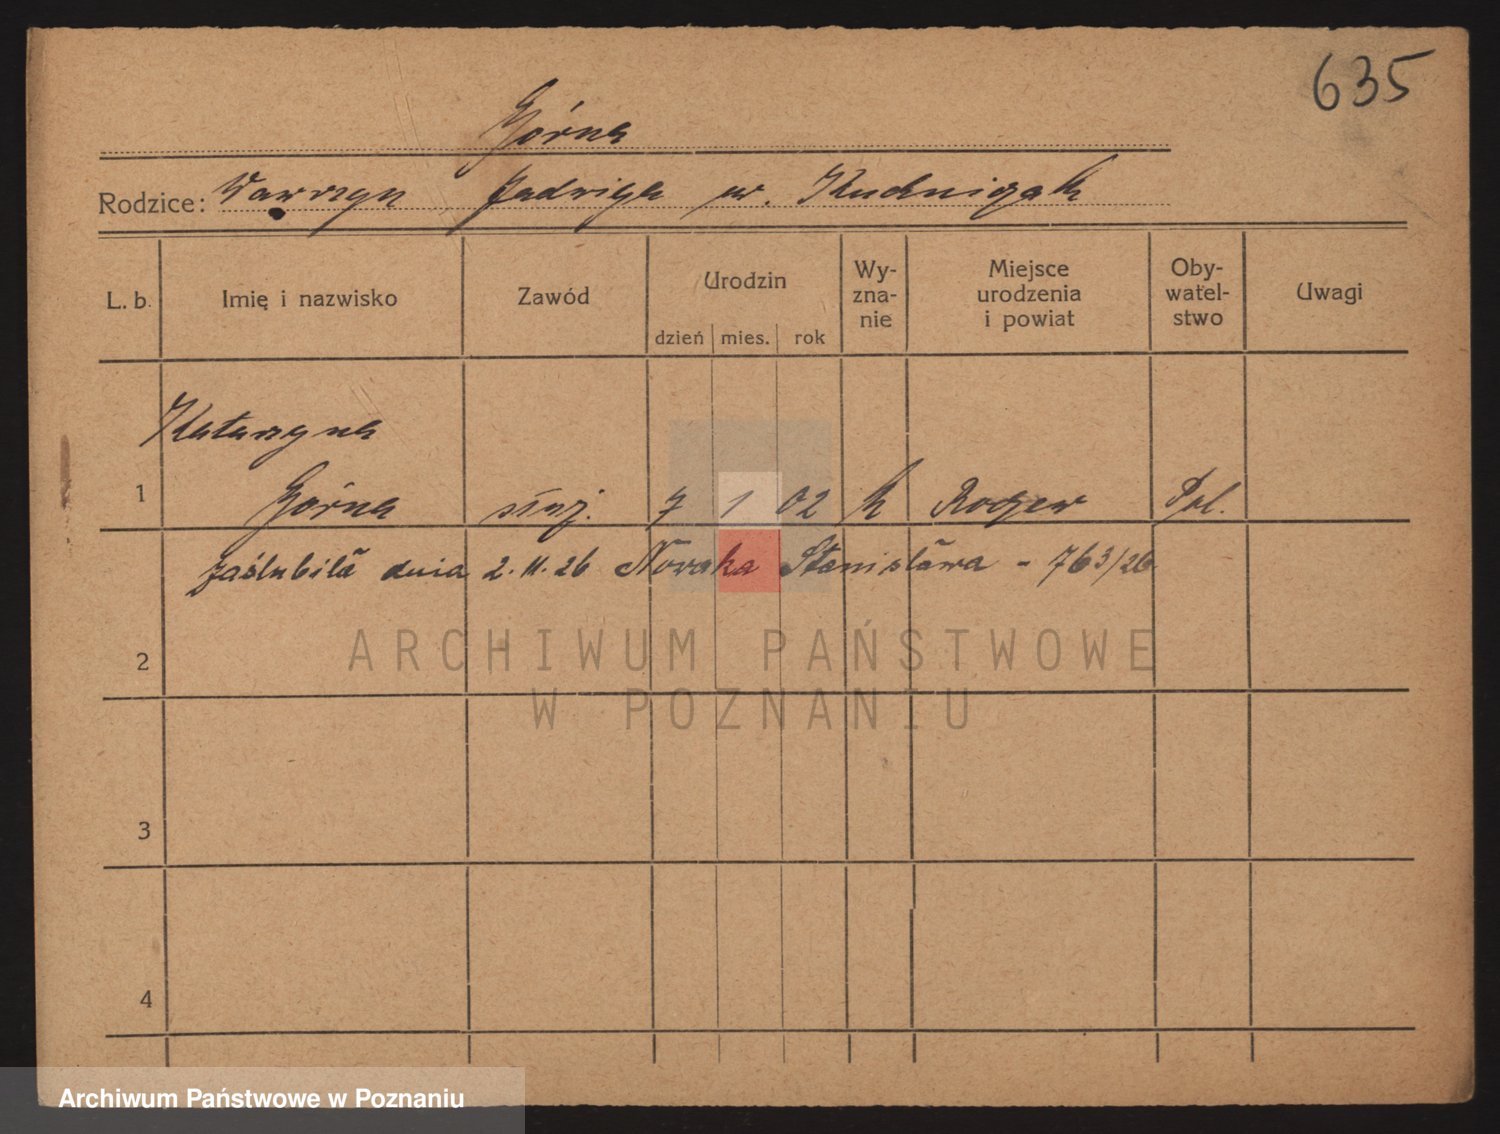 635
Górna
Rodzice: Wawrzyn Jadwiga ur. Kudniczak
L. b. Imię i nazwisko Zawód Urodzin dzień mies. rok Wy-zna-nie Miejsce urodzenia i powiat Oby-watel-stwo Uwagi
Katarzyna
1 Górna służ. 7 1 02 k Pol.
zaślubiła dnia 2.11.26 Nowaka Stanisława - 763/26
2
ARCHIWUM PAŃSTWOWE
W POZNANIU
3
4
Archiwum Państwowe w Poznaniu